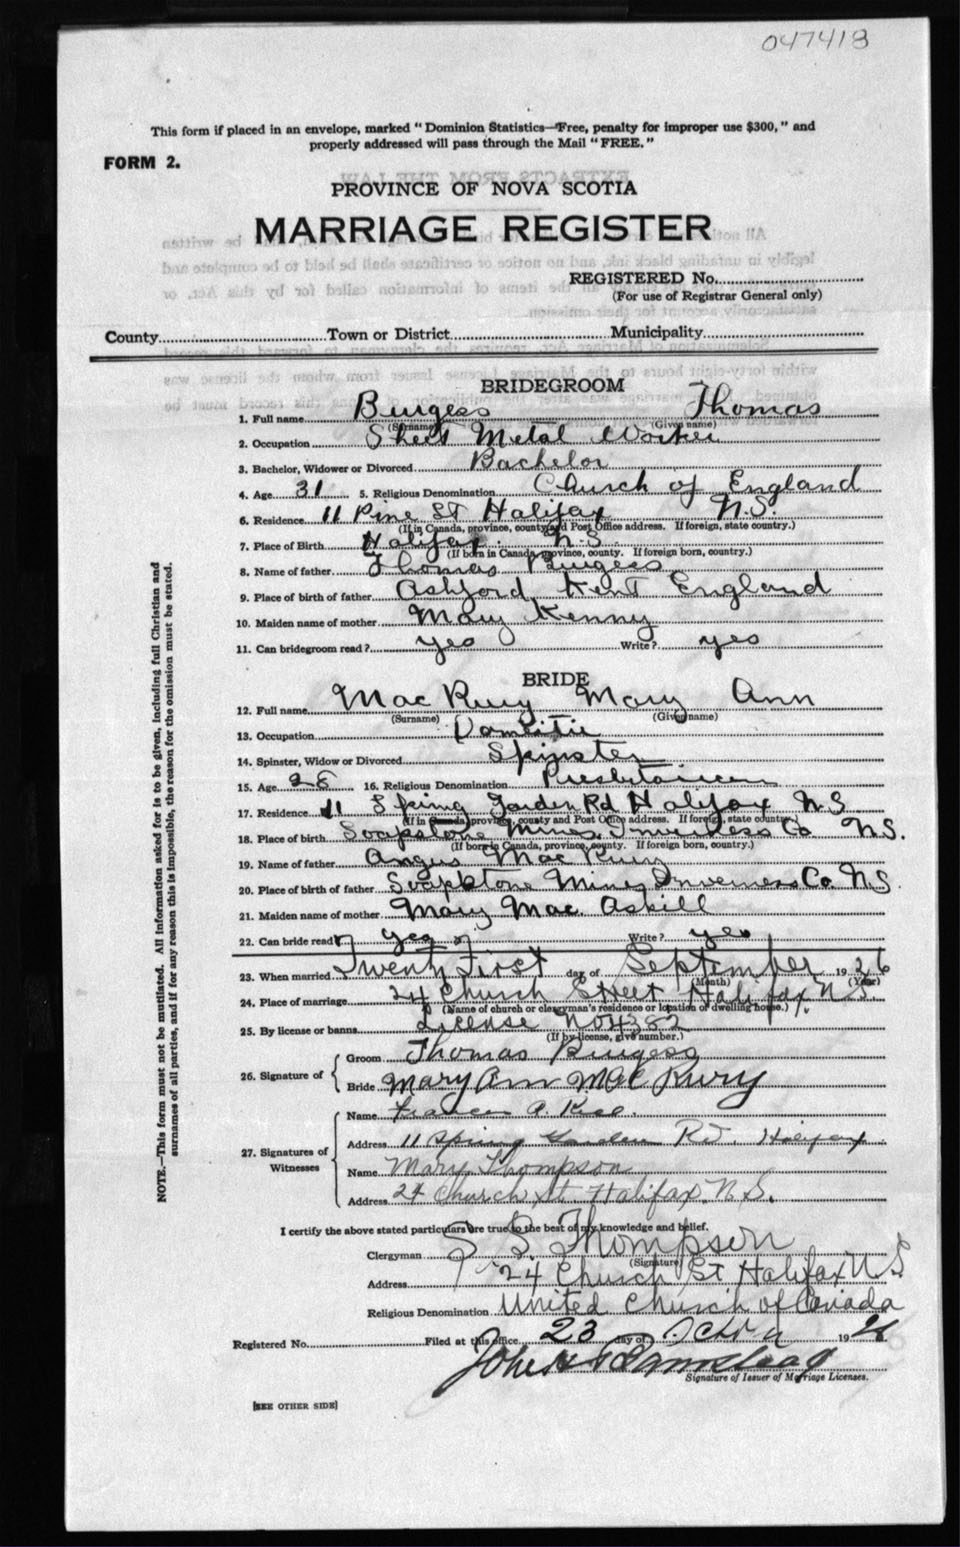 047418
This form if placed in an envelope, marked "Dominion Statistics—Free, penalty for improper use $300," and
properly addressed will pass through the Mail "FREE."
FORM 2.
PROVINCE OF NOVA SCOTIA
MARRIAGE REGISTER
REGISTERED No.
(For use of Registrar General only)
County Town or District Municipality
BRIDEGROOM
1. Full name Burgess Thomas
(Surname) (Given name)
2. Occupation Sheet Metal Worker
3. Bachelor, Widower or Divorced Bachelor
4. Age 31 5. Religious Denomination Church of England
6. Residence 11 Pine St Halifax N.S.
(If in Canada, province, county and Post Office address. If foreign, state country.)
7. Place of Birth Halifax N.S.
(If born in Canada, province, county. If foreign born, country.)
8. Name of father Thomas Burgess
9. Place of birth of father Ashford Kent England
10. Maiden name of mother Mary Kenny
11. Can bridegroom read? yes Write? yes
BRIDE
12. Full name Mac Rury Mary Ann
(Surname) (Given name)
13. Occupation Domestic
14. Spinster, Widow or Divorced Spinster
15. Age 28 16. Religious Denomination
17. Residence 11 Spring Garden Rd Halifax N.S
(If in Canada, province, county and Post Office address. If foreign, state country.)
18. Place of birth Soapstone Mines Inverness Co N.S.
(If born in Canada, province, county. If foreign born, country.)
19. Name of father Angus Mac Rury
20. Place of birth of father Soapstone Mines Inverness Co. N.S.
21. Maiden name of mother Mary Mac Askill
22. Can bride read? yes Write? yes
23. When married Twenty First day of September 1926
(Month) (Year)
24. Place of marriage 24 Church Street Halifax N.S.
(Name of church or clergyman's residence or location of dwelling house.)
25. By license or banns License No 4382
(If by license, give number.)
26. Signature of
Groom Thomas Burgess
Bride Mary Ann Mac Rury
27. Signatures of Witnesses
Name Frances A.
Address 11 Spring Garden Rd. Halifax
Name Mary Thompson
Address 24 Church St Halifax N.S.
I certify the above stated particulars are true to the best of my knowledge and belief.
Clergyman Thompson
(Signature)
Address 24 Church St Halifax N.S
Religious Denomination United Church of Canada
Registered No. Filed at this office 23 day of 1926
John
Signature of Issuer of Marriage Licenses.
[SEE OTHER SIDE]
NOTE.—This form must not be mutilated. All information asked for is to be given, including full Christian and
surnames of all parties, and if for any reason this is impossible, the reason for the omission must be stated.